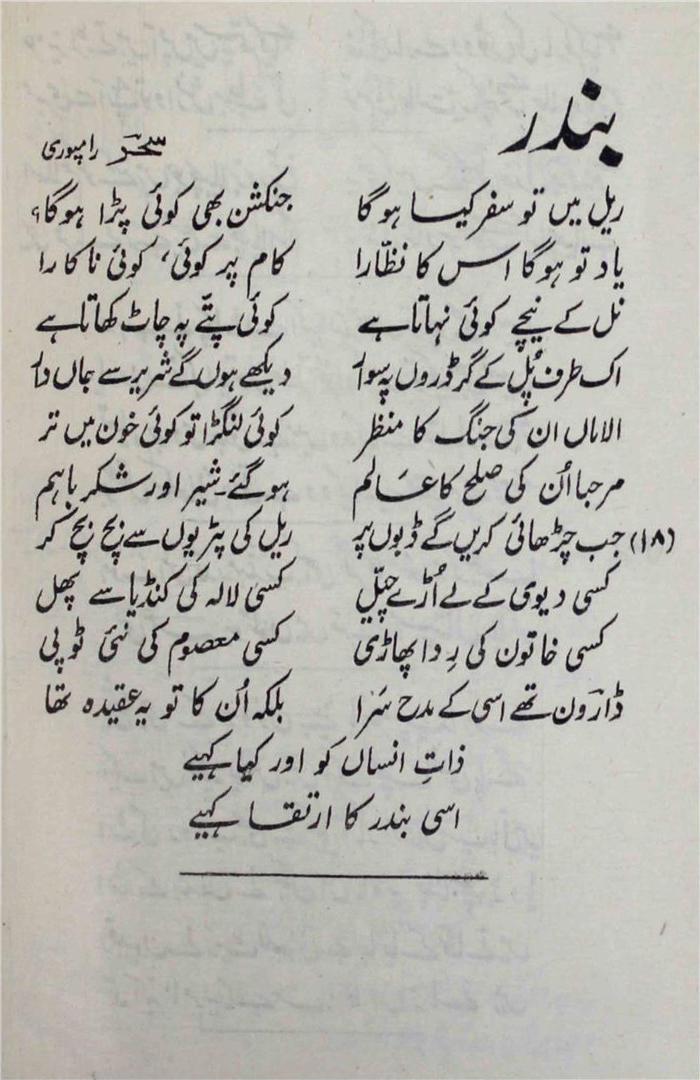 بندر
سحرؔ رامپوری
ریل میں تو سفر کیا ہوگا جنکشن بھی کوئی پڑا ہوگا؟
یاد تو ہوگا اس کا نظّارا کام پر کوئی، کوئی ناکارا
نل کے نیچے کوئی نہاتا ہے کوئی پتّے پہ چاٹ کھاتا ہے
اک طرف پُل کے گرڈروں پہ سوار دیکھے ہوں گے شریر سے جاں دار
الاماں ان کی جنگ کا منظر کوئی لنگڑا تو کوئی خون میں تر
مرحبا اُن کی صلح کا عَالم ہوگئے۔شیر اور شکر باہم
(۱۸) جب چڑھائی کریں گے ڈبوں پر ریل کی پٹریوں سے بچ بچ کر
کسی دیوی کے لے اُڑے چپّل کسی لالہ کی کنڈیا سے پھل
کسی خاتون کی رِدا پھاڑی کسی معصوم کی نئی ٹوپی
ڈارؔون تھے اسی کے مدح سَرا بلکہ اُن کا تو یہ عقیدہ تھا
ذاتِ انساں کو اور کیا کہیے
اسی بندر کا ارتقا کہیے